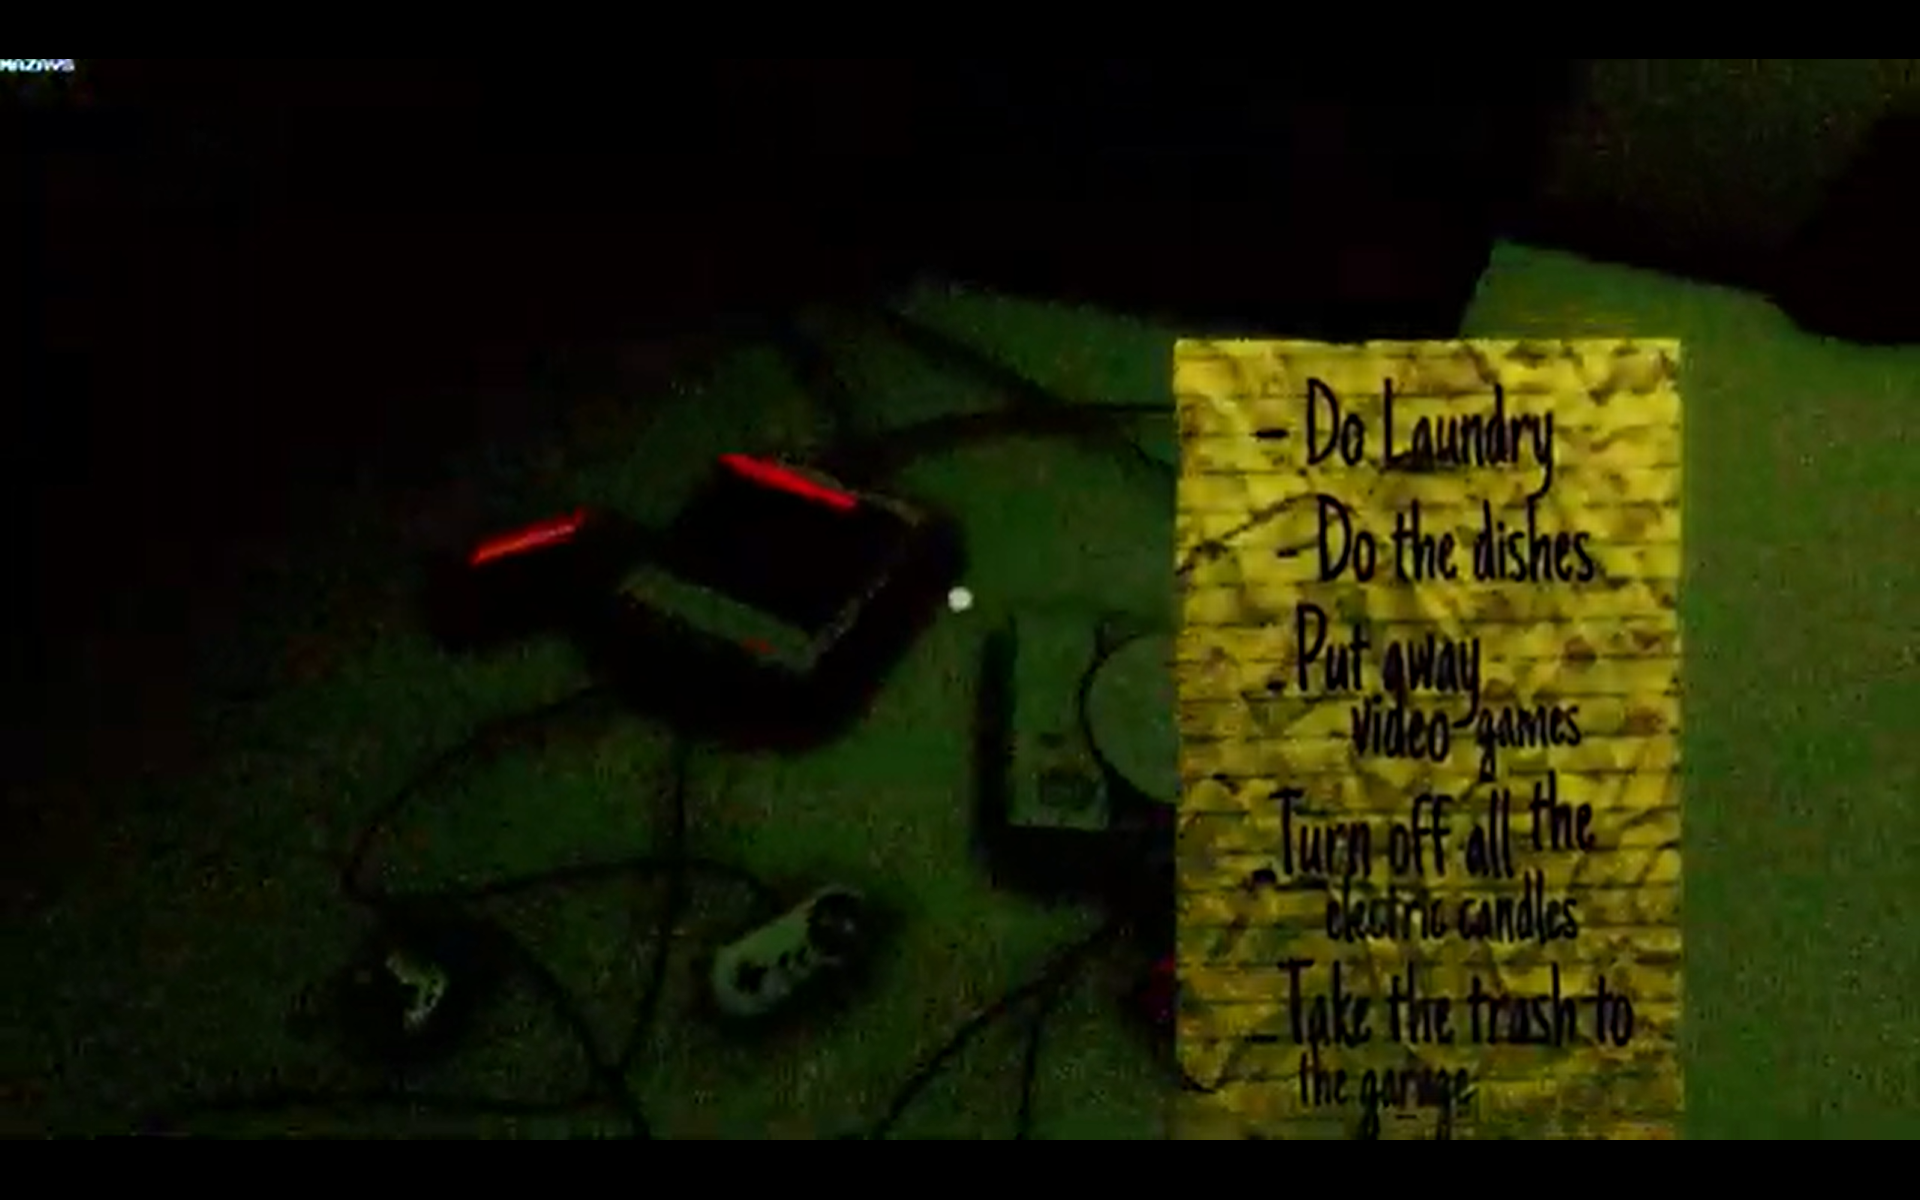 - Do Laundry
- Do the dishes
- Put away
video games
- Turn off all the
electric candles
- Take the trash to
the garage